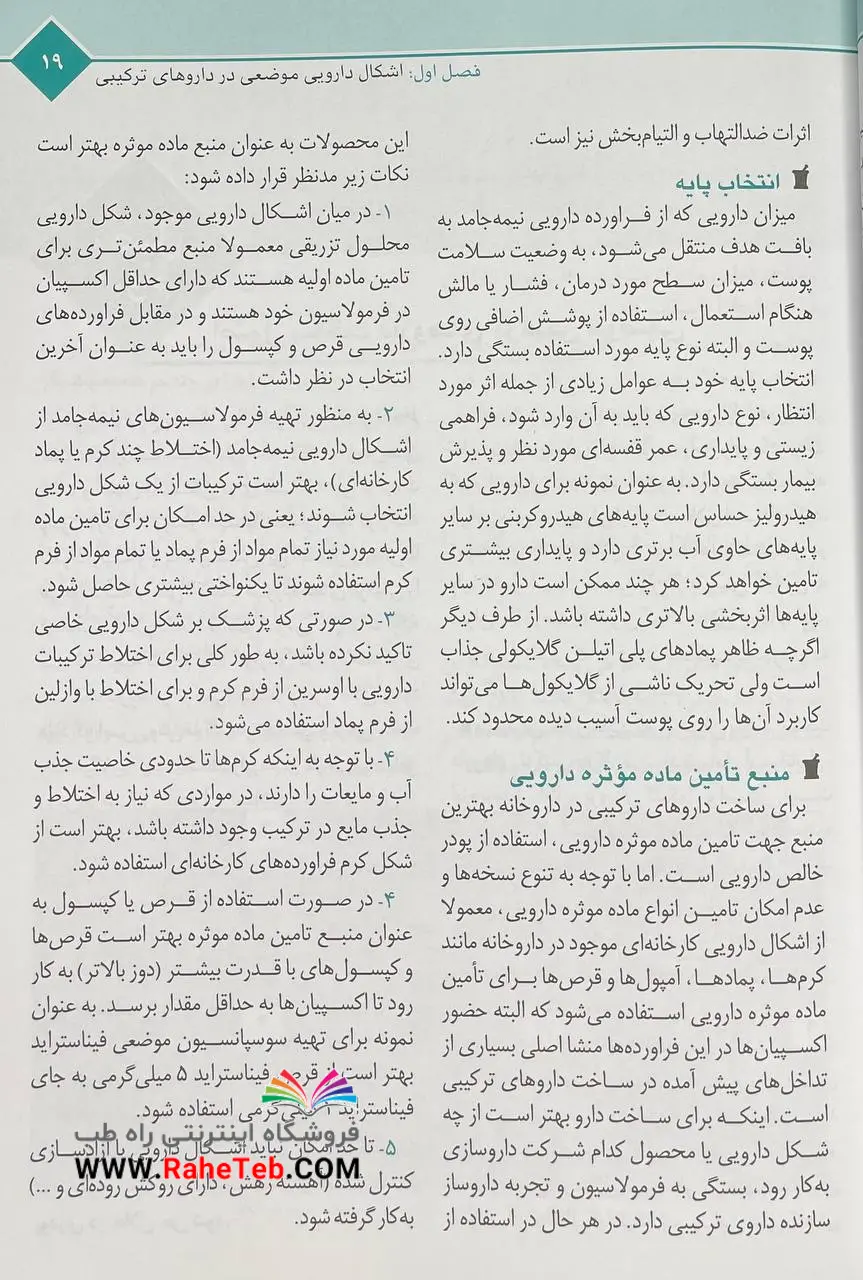 ۱۹
فصل اول: اشکال دارویی موضعی در داروهای ترکیبی
اثرات ضدالتهاب و التیام‌بخش نیز است.
انتخاب پایه
میزان دارویی که از فراورده دارویی نیمه‌جامد به
بافت هدف منتقل می‌شود، به وضعیت سلامت
پوست، میزان سطح مورد درمان، فشار یا مالش
هنگام استعمال، استفاده از پوشش اضافی روی
پوست و البته نوع پایه مورد استفاده بستگی دارد.
انتخاب پایه خود به عوامل زیادی از جمله اثر مورد
انتظار، نوع دارویی که باید به آن وارد شود، فراهمی
زیستی و پایداری، عمر قفسه‌ای مورد نظر و پذیرش
بیمار بستگی دارد. به عنوان نمونه برای دارویی که به
هیدرولیز حساس است پایه‌های هیدروکربنی بر سایر
پایه‌های حاوی آب برتری دارد و پایداری بیشتری
تامین خواهد کرد؛ هر چند ممکن است دارو در سایر
پایه‌ها اثربخشی بالاتری داشته باشد. از طرف دیگر
اگرچه ظاهر پمادهای پلی اتیلن گلایکولی جذاب
است ولی تحریک ناشی از گلایکول‌ها می‌تواند
کاربرد آن‌ها را روی پوست آسیب دیده محدود کند.
منبع تأمین ماده مؤثره دارویی
برای ساخت داروهای ترکیبی در داروخانه بهترین
منبع جهت تامین ماده موثره دارویی، استفاده از پودر
خالص دارویی است. اما با توجه به تنوع نسخه‌ها و
عدم امکان تامین انواع ماده موثره دارویی، معمولا
از اشکال دارویی کارخانه‌ای موجود در داروخانه مانند
کرم‌ها، پمادها، آمپول‌ها و قرص‌ها برای تأمین
ماده موثره دارویی استفاده می‌شود که البته حضور
اکسپیان‌ها در این فراورده‌ها منشا اصلی بسیاری از
تداخل‌های پیش آمده در ساخت داروهای ترکیبی
است. اینکه برای ساخت دارو بهتر است از چه
شکل دارویی یا محصول کدام شرکت داروسازی
به‌کار رود، بستگی به فرمولاسیون و تجربه داروساز
سازنده داروی ترکیبی دارد. در هر حال در استفاده از
این محصولات به عنوان منبع ماده موثره بهتر است
نکات زیر مدنظر قرار داده شود:
۱- در میان اشکال دارویی موجود، شکل دارویی
محلول تزریقی معمولا منبع مطمئن‌تری برای
تامین ماده اولیه هستند که دارای حداقل اکسپیان
در فرمولاسیون خود هستند و در مقابل فراورده‌های
دارویی قرص و کپسول را باید به عنوان آخرین
انتخاب در نظر داشت.
۲- به منظور تهیه فرمولاسیون‌های نیمه‌جامد از
اشکال دارویی نیمه‌جامد (اختلاط چند کرم یا پماد
کارخانه‌ای)، بهتر است ترکیبات از یک شکل دارویی
انتخاب شوند؛ یعنی در حد امکان برای تامین ماده
اولیه مورد نیاز تمام مواد از فرم پماد یا تمام مواد از فرم
کرم استفاده شوند تا یکنواختی بیشتری حاصل شود.
۳- در صورتی که پزشک بر شکل دارویی خاصی
تاکید نکرده باشد، به طور کلی برای اختلاط ترکیبات
دارویی با اوسرین از فرم کرم و برای اختلاط با وازلین
از فرم پماد استفاده می‌شود.
۴- با توجه به اینکه کرم‌ها تا حدودی خاصیت جذب
آب و مایعات را دارند، در مواردی که نیاز به اختلاط و
جذب مایع در ترکیب وجود داشته باشد، بهتر است از
شکل کرم فراورده‌های کارخانه‌ای استفاده شود.
۴- در صورت استفاده از قرص یا کپسول به
عنوان منبع تامین ماده موثره بهتر است قرص‌ها
و کپسول‌های با قدرت بیشتر (دوز بالاتر) به کار
رود تا اکسپیان‌ها به حداقل مقدار برسد. به عنوان
نمونه برای تهیه سوسپانسیون موضعی فیناستراید
بهتر است از قرص فیناستراید ۵ میلی‌گرمی به جای
فیناستراید ۱ میلی‌گرمی استفاده شود.
۵- تا حد امکان نباید اشکال دارویی با آزادسازی
کنترل شده (آهسته رهش، دارای روکش روده‌ای و ...)
به‌کار گرفته شود.
فروشگاه اینترنتی راه طب
www.RaheTeb.com